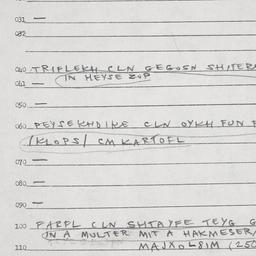 031 —
032
040 TRIFLEKH CLN GEGOSN SHITERE
IN HEYSE ZUP
041 —
050 —
060 PEYSEKHDIKE CLN OYKH FUN F
/KLOPS/ CM KARTOFL
070 —
080 —
090 —
100 FARFL CLN SHTAYFE TEYG G
IN A MULTER MIT A HAKMESER/
110 MAJXOLSIM (250